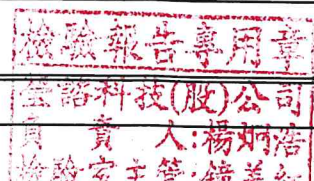 檢驗報告專用章
瑩諮科技(股)公司
負責人:楊炯浩
檢驗室主管:鍾美